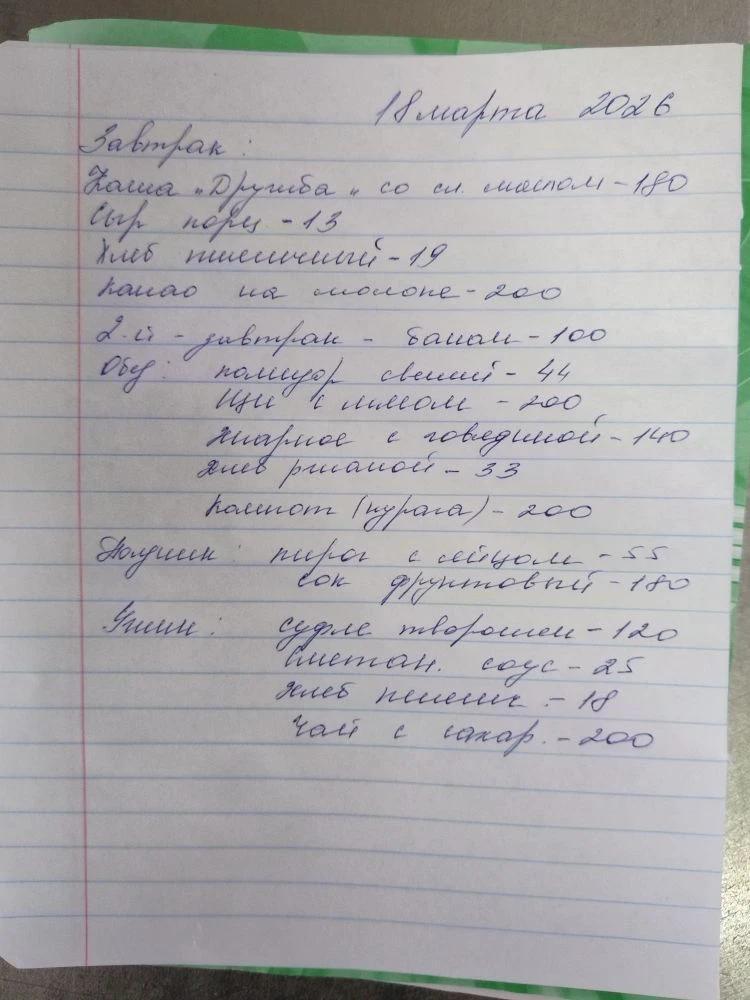 18 марта 2026
Завтрак:
Каша „Дружба„ со сл. маслом - 180
Сыр порц - 13
Хлеб пшеничный - 19
Какао на молоке - 200
2-й - завтрак - банан - 100
Обед: помидор свежий - 44
Щи с мясом - 200
Жаркое с говядиной - 140
Хлеб ржаной - 33
Компот (курага) - 200
Полдник: пирог с яйцом - 55
сок фруктовый - 180
Ужин: суфле творожн - 120
Сметан. соус - 25
Хлеб пшенич. - 18
Чай с сахар. - 200